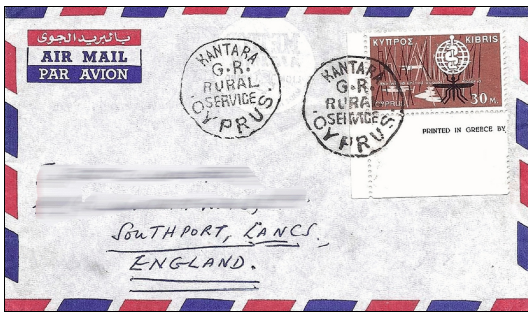 بالبريد الجوى
AIR MAIL
PAR AVION
KANTARA
G.R.
RURAL
SERVICE
CYPRUS.
KANTARA
G.R.
RURA
SERVICE
CYPRUS.
ΚΥΠΡΟΣ KIBRIS
CYPRUS
30 M.
PRINTED IN GREECE BY
SOUTHPORT, LANCS,
ENGLAND.